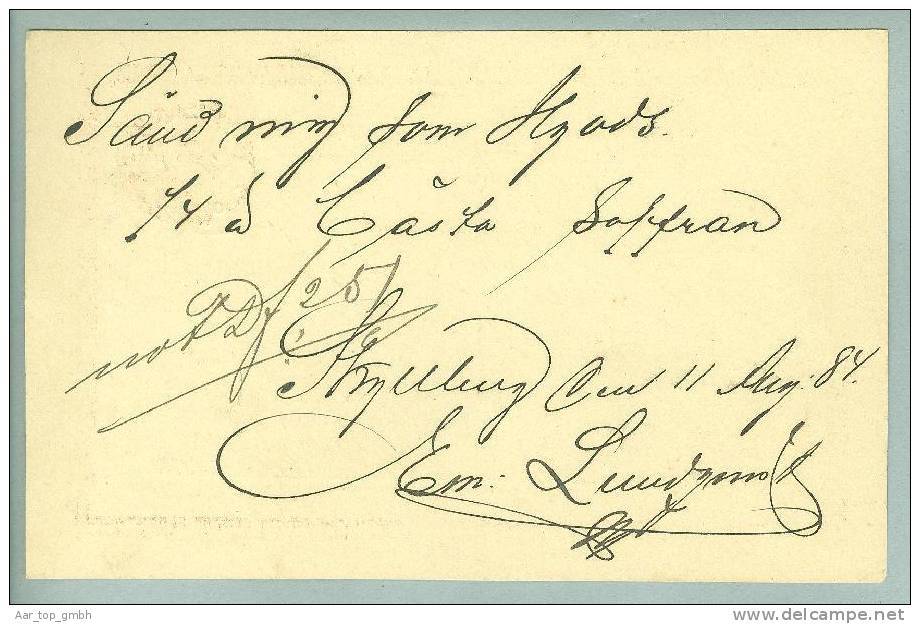 Sänd mig som Ilgods.
1/4 ℔ bästa Saffran
not
Skyllberg den 11 Aug: 84.
Em: Lundqvist
Aar_top_gmbh
delcampe.net